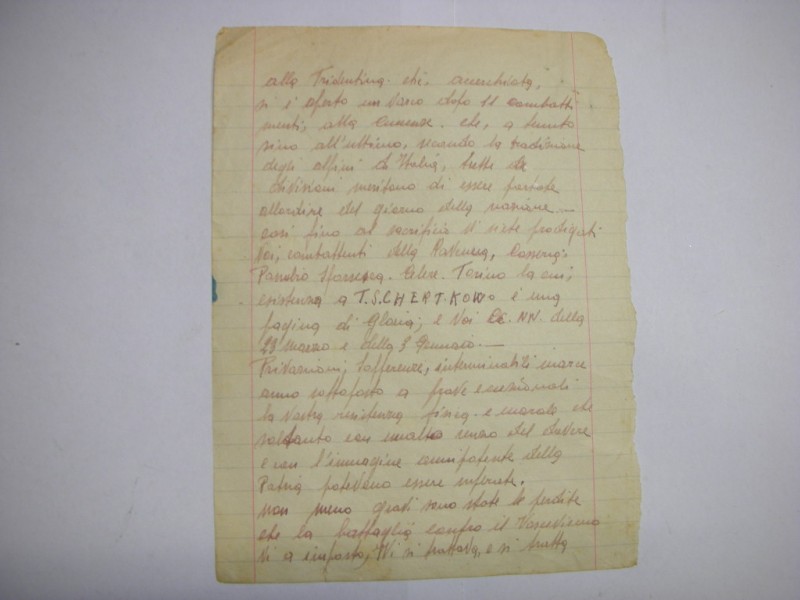 alla Tridentina che, accerchiata,
si è aperto un varco dopo 11 combatti
menti, alla Cuneense che, a tenuto
sino all'ultimo, secondo la tradizione
degli alpini d'Italia, tutte le
divisioni meritano di essere portate
all'ordine del giorno della nazione
così fino al sacrificio vi siete prodigati
Voi, combattenti della Ravenna, Cosseria
Pasubio Sforzesca. Celere. Torino la cui,
esistenza a T.S.CHERT.KOWO è una
pagina di Gloria; e Voi CC. NN. della
23 marzo e della 3 Gennaio.—
Privazioni, Sofferenze, interminabili marce
anno sottoposto a prove eccezionali
la vostra resistenza fisica e morale che
soltanto con un alto senso del dovere
e con l'immagine onnipotente della
Patria potevano essere superate.
non meno gravi sono state le perdite
che la battaglia contro il
vi a imposto, Vi si trattava, e si tratta